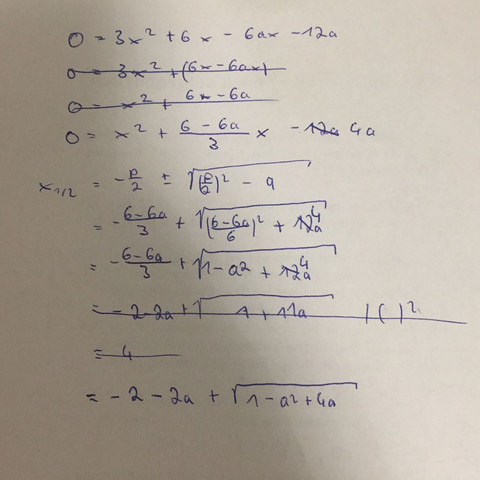 0 = 3x² + 6x - 6ax - 12a
0 = 3x² + (6x - 6ax)
0 = x² + 6x - 6a
0 = x² + \frac{6 - 6a}{3} x - 12a 4a
x_{1/2} = -\frac{p}{2} ± \sqrt{(\frac{p}{2})² - q}
= -\frac{6-6a}{3} + \sqrt{(\frac{6-6a}{6})² + 12a 4}
= -\frac{6-6a}{3} + \sqrt{1 - a² + 12a 4}
= -2-2a + \sqrt{1 + 11a} | ( )²
= 4
= -2 - 2a + \sqrt{1 - a² + 4a}